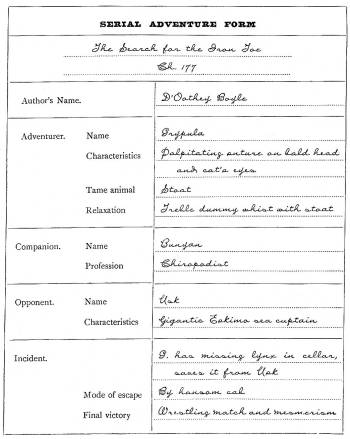 SERIAL ADVENTURE FORM
The Search for the Iron Toe
Ch. 177
Author's Name. D'Oothey Boyle
Adventurer. Name Trypula
Characteristics Palpitating suture on bald head
and cat's eyes
Tame animal Stoat
Relaxation Treble dummy whist with stoat
Companion. Name Bunyan
Profession Chiropodist
Opponent. Name Usk
Characteristics Gigantic Eskimo sea captain
Incident. T. has missing lynx in cellar,
saves it from Usk
Mode of escape By hansom cab
Final victory Wrestling match and mesmerism